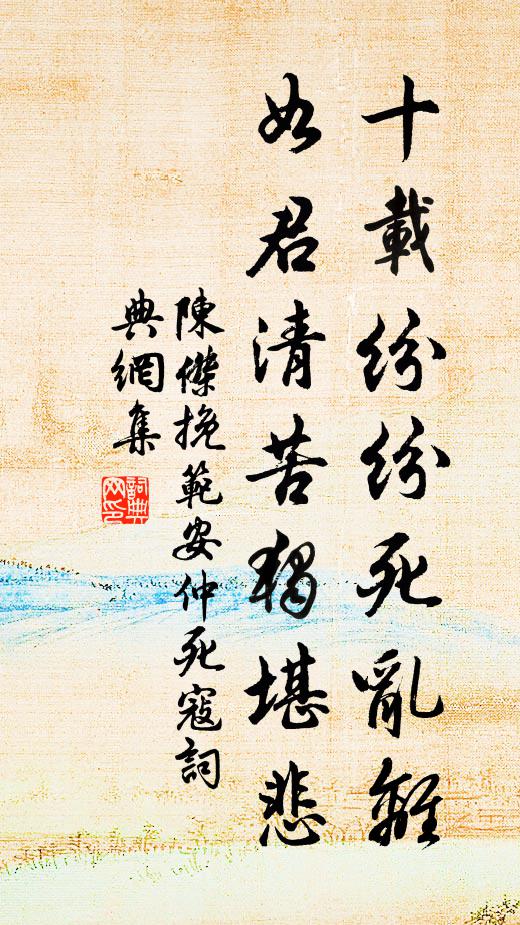 十載紛紛死亂離
如君清苦獨堪悲
陳傑挽範安仲死寇詞
典網集
詞典网印